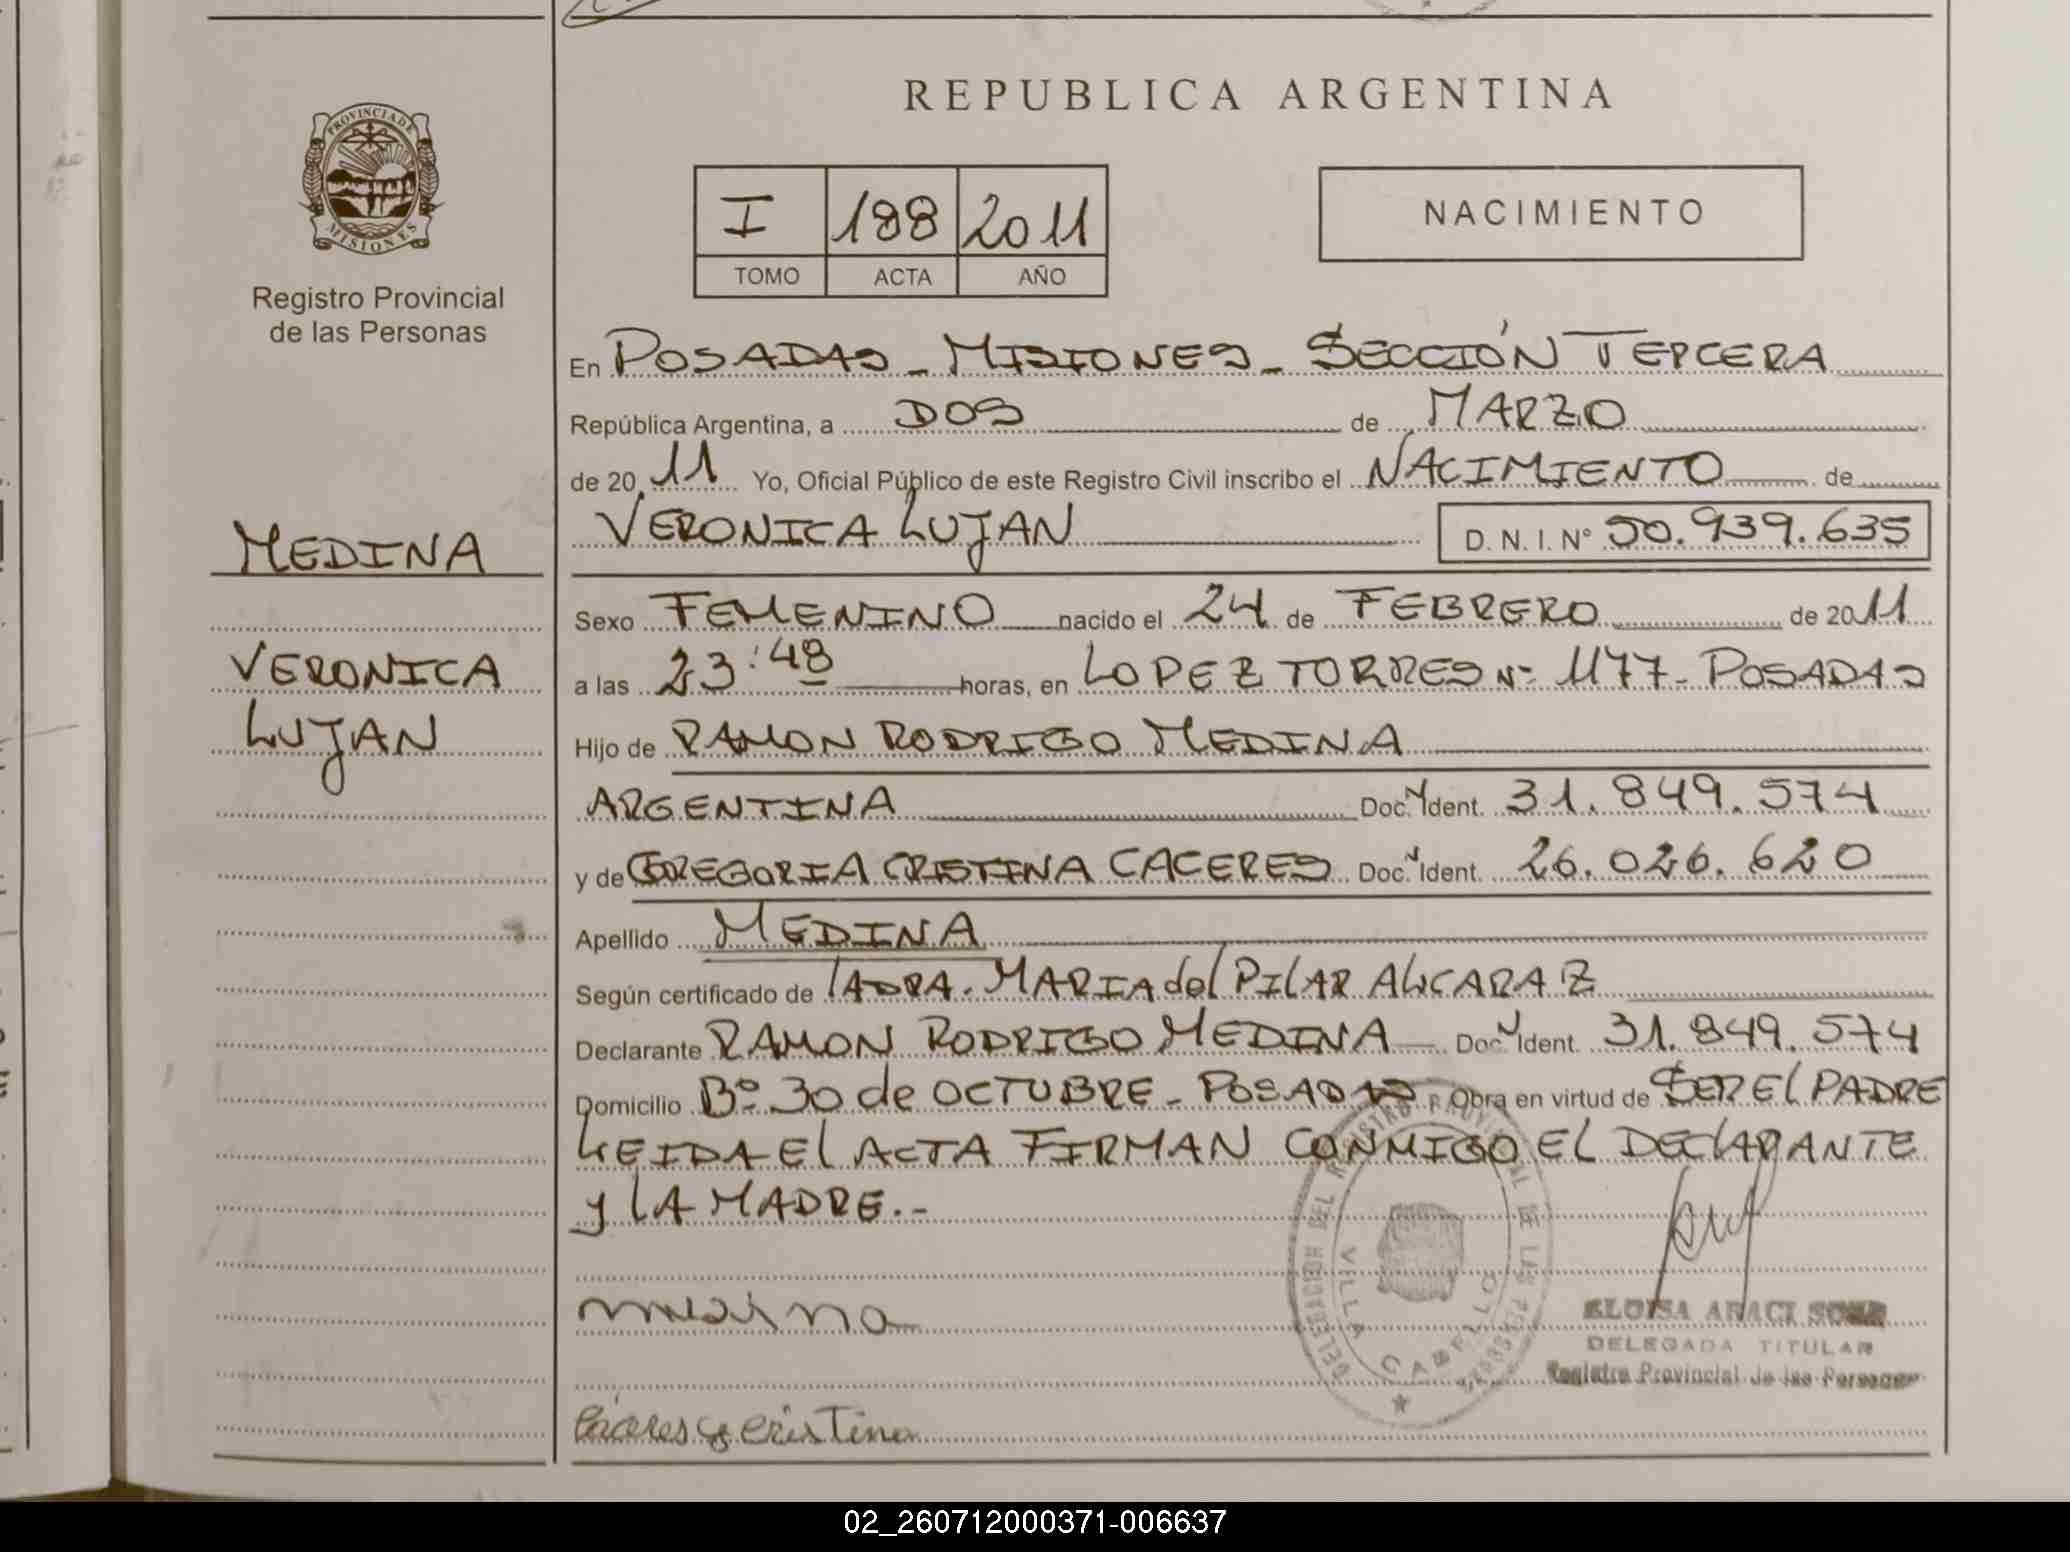 REPUBLICA ARGENTINA
PROVINCIA DE
MISIONES
Registro Provincial
de las Personas
I 188 2011
TOMO ACTA AÑO
NACIMIENTO
En POSADAS - MISIONES - SECCIÓN TERCERA
República Argentina, a DOS de MARZO
de 2011 Yo, Oficial Público de este Registro Civil inscribo el NACIMIENTO de
VERONICA LUJAN D. N. I. N° 50.939.635
MEDINA
VERONICA
LUJAN
Sexo FEMENINO nacido el 24 de FEBRERO de 2011
a las 23:48 horas, en LOPEZ TORRES N° 1177 - POSADAS
Hijo de RAMON RODRIGO MEDINA
ARGENTINA Doc. Ident. 31.849.574
y de GREGORIA CRISTINA CACERES Doc. Ident. 26.026.620
Apellido MEDINA
Según certificado de lA DRA. MARIA del PILAR AlCARAZ
Declarante RAMON RODRIGO MEDINA Doc. Ident. 31.849.574
Domicilio B° 30 de OCTUBRE - POSADAS Obra en virtud de SER El PADRE
LEIDA El ACTA FIRMAN CONMIGO EL DEClARANTE
y lA MADRE.-
DELEGACION DEL REGISTRO PROVINCIAL DE LAS PERSONAS
VILLA CABELLO
medina
ELOISA ARACI
DELEGADA TITULAR
Registro Provincial de las Personas
Cáceres G Cristina
02_260712000371-006637